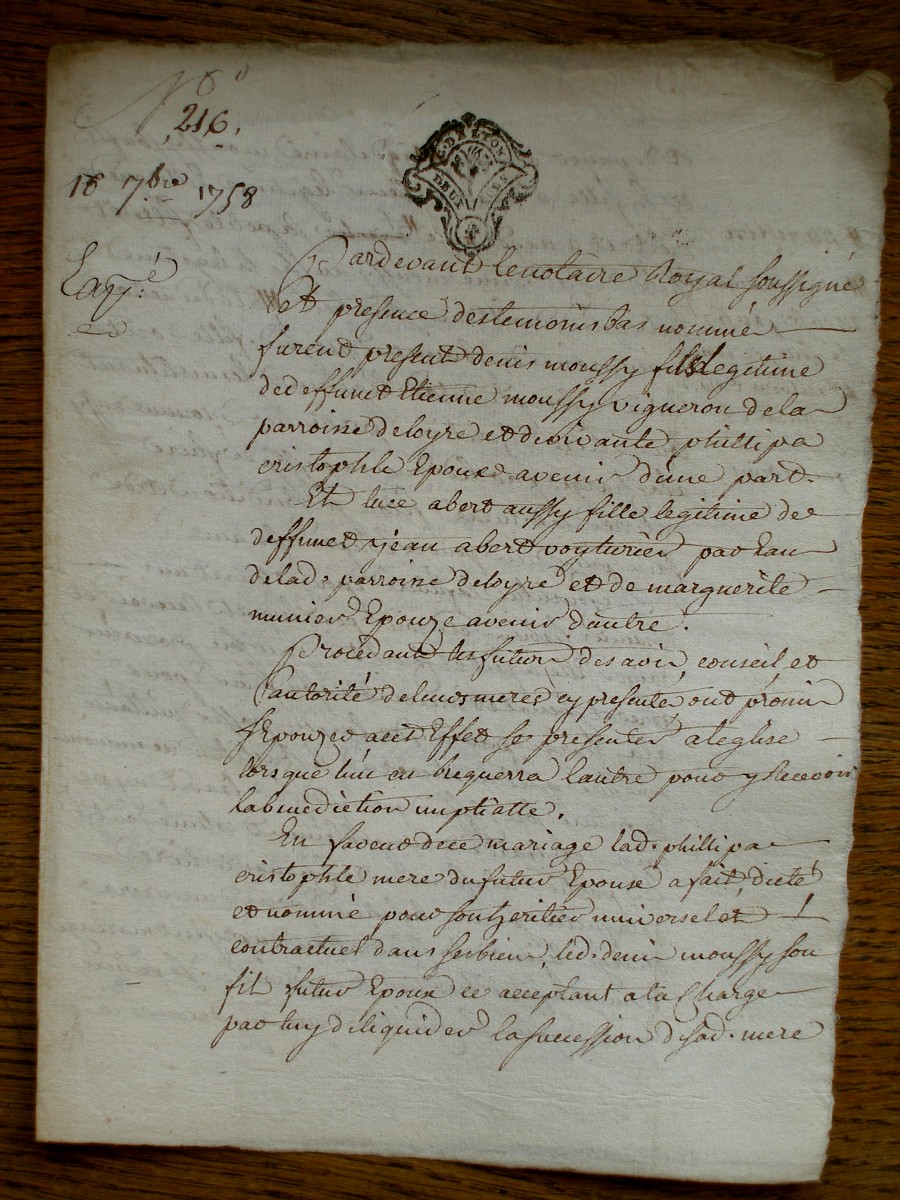 N°
216.
16 7bre 1758
Expé:
G. DE LYON
DEUX SOLS
Pardevant lenotaire Royal soussigné
Et presence destemoins bas nommé
furent present denis moussy fils legitime
dedeffunct Etienne moussy vigneron dela
parroisse deloyre et devivante phillipa
cristophle Epoux avenir d'une part.
Et luce abert aussy fille legitime de
deffunct jean abert voyturier par Eau
delad. parroisse deloyre et de marguerite
munier Epouze avenir d'autre.
Procedant les futur des avis, conseil et
autorité deleurs meres cy presente, ont promis
sEpouzer acet Effet se presenter aleglise
lorsque lun en requerra lautre pour y recevoir
labenediction nuptialle.
En faveur dece mariage lad. phillipa
cristophle mere dufutur Epoux a fait, dicté
et nommé pour son heritier universel et
contractuel dans ses bien, led. denis moussy son
fils futur Epoux ce acceptant a la charge
par luy deliquider la succession desad. mere